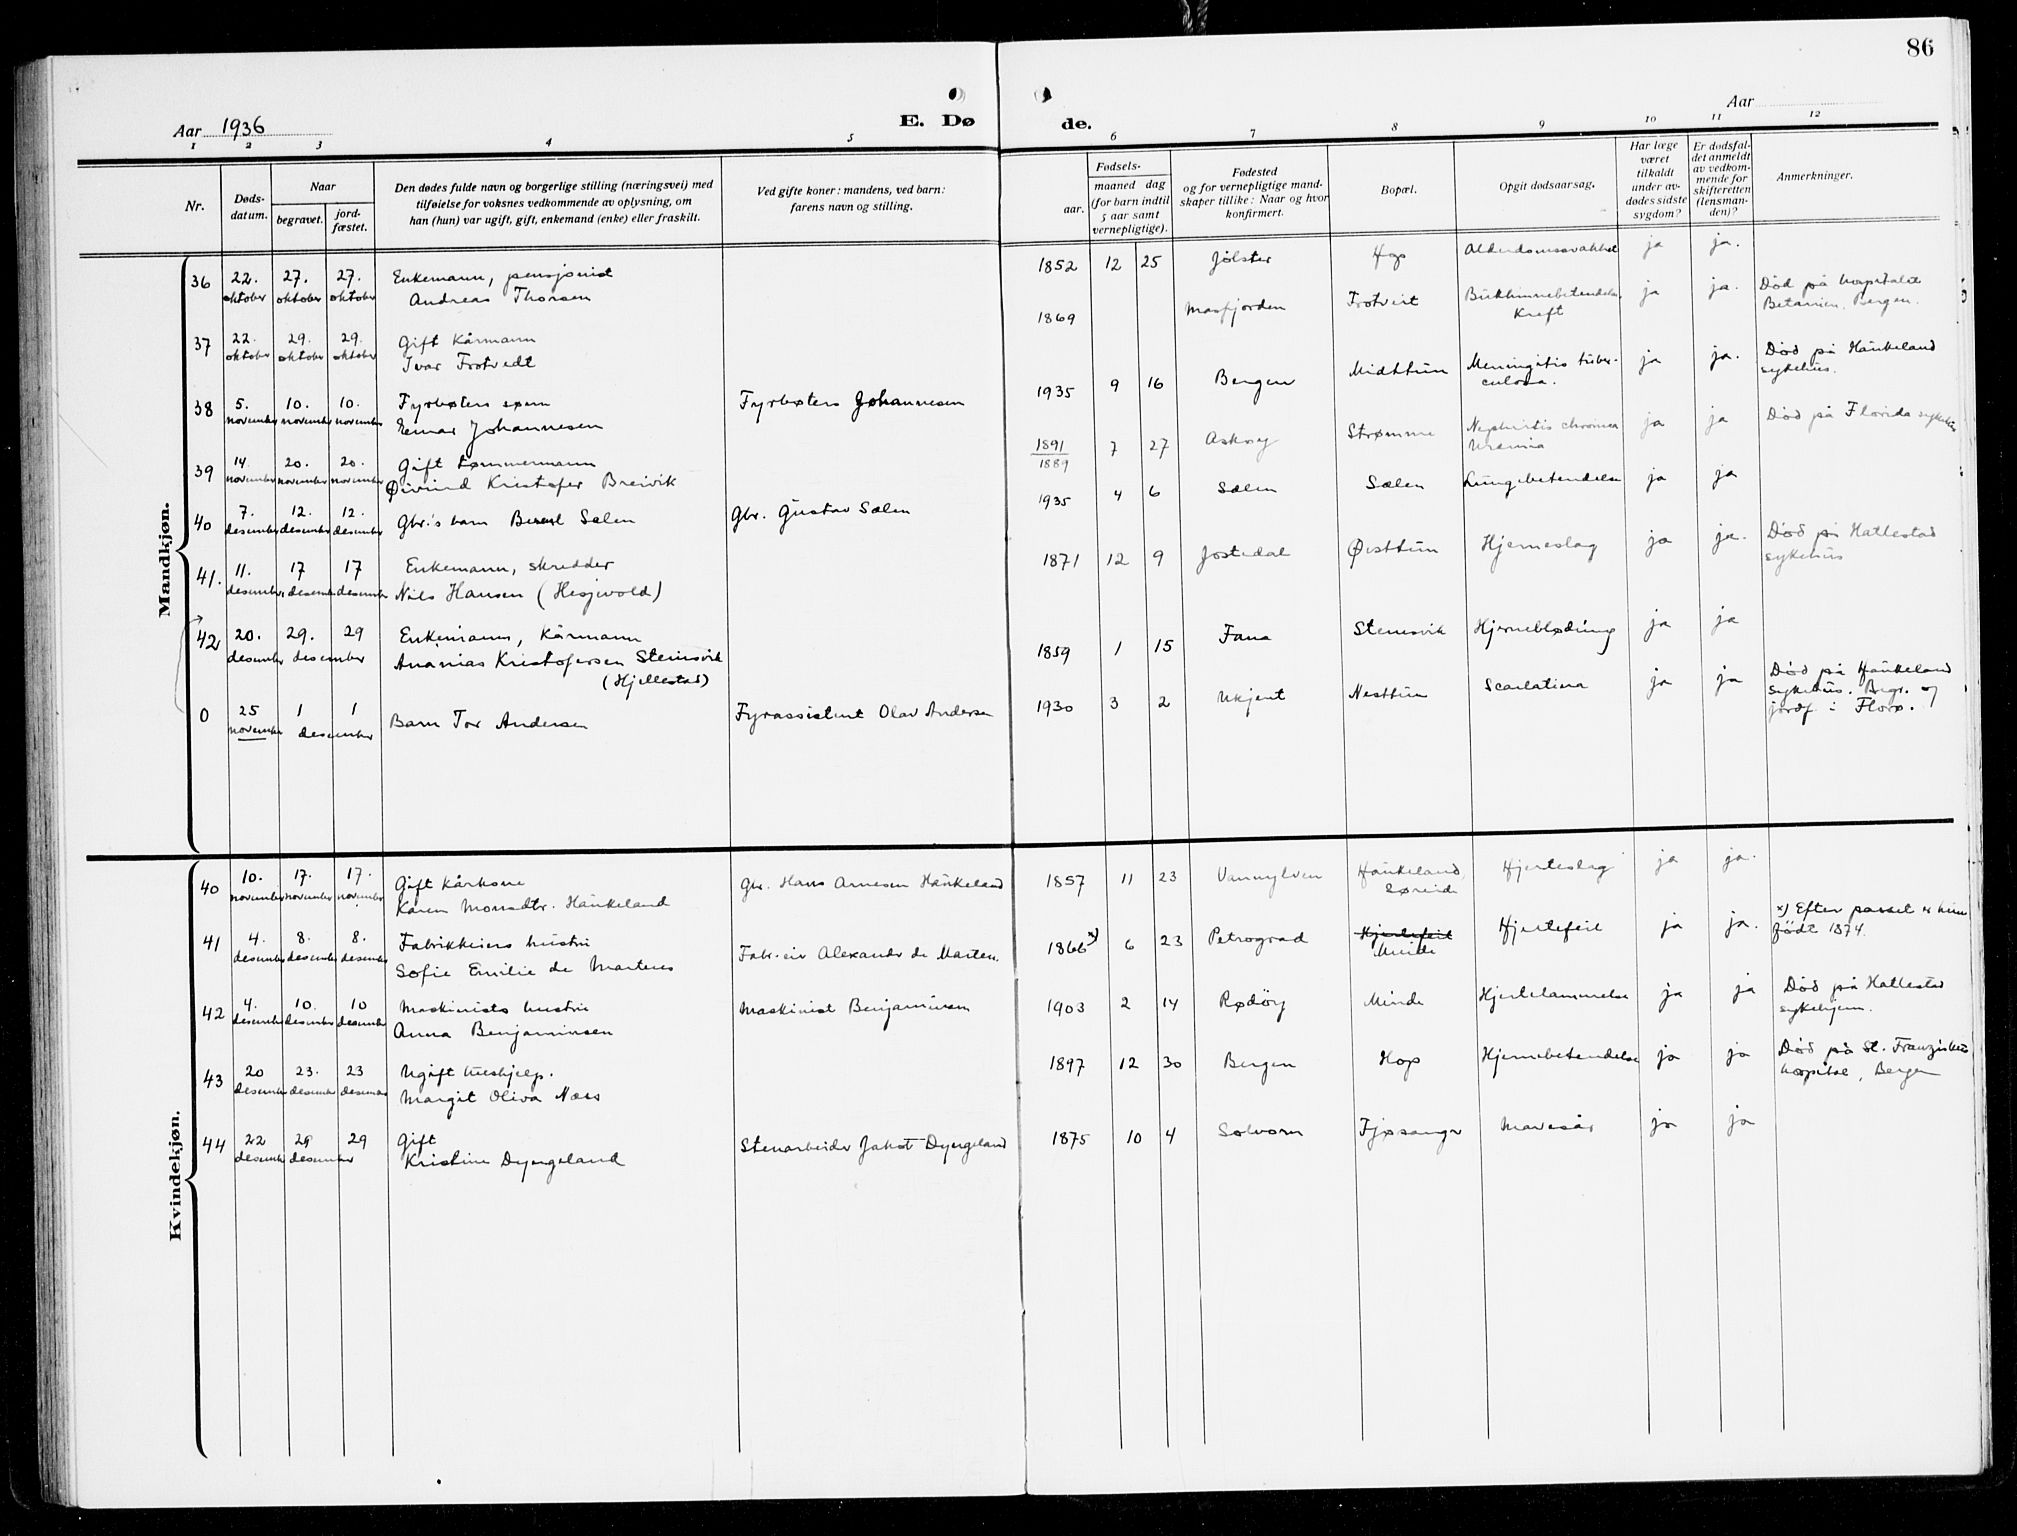 86
Aar 1936
E. Dø
de.
Aar
1 2 3 4 5 6 7 8 9 10 11 12
Nr.
Døds-
datum.
Naar
begravet.
jord-
fæstet.
Den dødes fulde navn og borgerlige stilling (næringsvei) med
tilføielse for voksnes vedkommende av oplysning, om
han (hun) var ugift, gift, enkemand (enke) eller fraskilt.
Ved gifte koner: mandens, ved barn:
farens navn og stilling.
Fødsels-
aar.
maaned dag
(for barn indtil
5 aar samt
vernepligtige).
Fødested
og for vernepligtige mand-
skaper tillike: Naar og hvor
konfirmert.
Bopæl.
Opgit dødsaarsag.
Har læge
været
tilkaldt
under av-
dødes sidste
sygdom?
Er dødsfal-
det anmeldt
av vedkom-
mende for
skifteretten
(lensman-
den)?
Anmerkninger.
Mandkjøn.
36 22. oktober 27. oktober 27. oktober Enkemann, pensjonist
Andreas Thorsen
1852 12 25 Jølster Hop Alderdomssvakhet ja ja.
37 22. oktober 29. oktober 29. oktober Gift kårmann
Ivar Frotvedt
1869 Masfjorden Frotveit Bukhinnebetendelse
Kreft
ja ja. Død på hospitalet
Betanien, Bergen.
38 5. november 10. november 10. november Fyrbøters sønn
Einar Johannesen
Fyrbøters Johannesen
1935 9 16 Bergen Midttun Meningitis tuber-
culosa.
ja ja. Død på Haukeland
sykehus.
39 14. november 20. november 20. november Gift tømmermann
Øivind Kristofer Breivik
1891
1889
7 27 Askøy Strømme Nephritis chronica
Uremia
ja ja Død på Florida sykehus
40 7. desember 12. desember 12. desember Gbr.'s barn Bernt Sælen
Gbr. Gustav Sælen
1935 4 6 Sælen Sælen Lungebetendelse ja ja
41. 11. desember 17 desember 17 desember Enkemann, skredder
Nils Hansen (Hesjevold)
1871 12 9 Jostedal Øisttun Hjerneslag ja ja. Død på Hatlestad
sykehus
42 20. desember 29. 29 desember Enkemann, kårmann
Ananias Kristofersen Steinsvik
(Hjellestad)
1859 1 15 Fana Steinsvik Hjerneblødning ja ja
0 25 november 1 1 desember Barn Tor Andersen
Fyrassistent Olav Andersen
1930 3 2 Ukjent Nesttun Scarlatina ja ja Død på Haukeland
sykehus. Begr. og
jordf. i Florø.
Kvindekjøn.
40 10. november 17. november 17. november Gift kårkone
Karen Monsdtr. Haukeland
Gbr. Hans Arnesen Haukeland
1857 11 23 Vannylven Haukeland
Søreide
Hjerteslag ja ja.
41 4. desember 8. desember 8. desember Fabrikkeiers hustru
Sofie Emilie de Martens
Fabr.eier Alexander de Martens.
1866 x) 6 23 Petrograd Hjertefeil
Minde
Hjertefeil ja ja. x) Efter passet er hun
født 1874.
42 4. desember 10. desember 10 desember Maskinists hustru
Anna Benjaminsen
Maskinist Benjaminsen
1903 2 14 Rødøy Minde Hjertelammelse ja ja Død på Hatlestad
sykehjem.
43 20 desember 23. desember 23 desember Ugift hushjelp.
Margit Oliva Næss
1897 12 30 Bergen Hop Hjernebetendelse ja ja Død på St. Franziskus
hospital, Bergen
44 22 desember 29 29 desember Gift
Kristine Dyngeland
Stenarbeider Jakob Dyngeland
1875 10 4 Solvorn Fjøsanger Mavesår ja ja